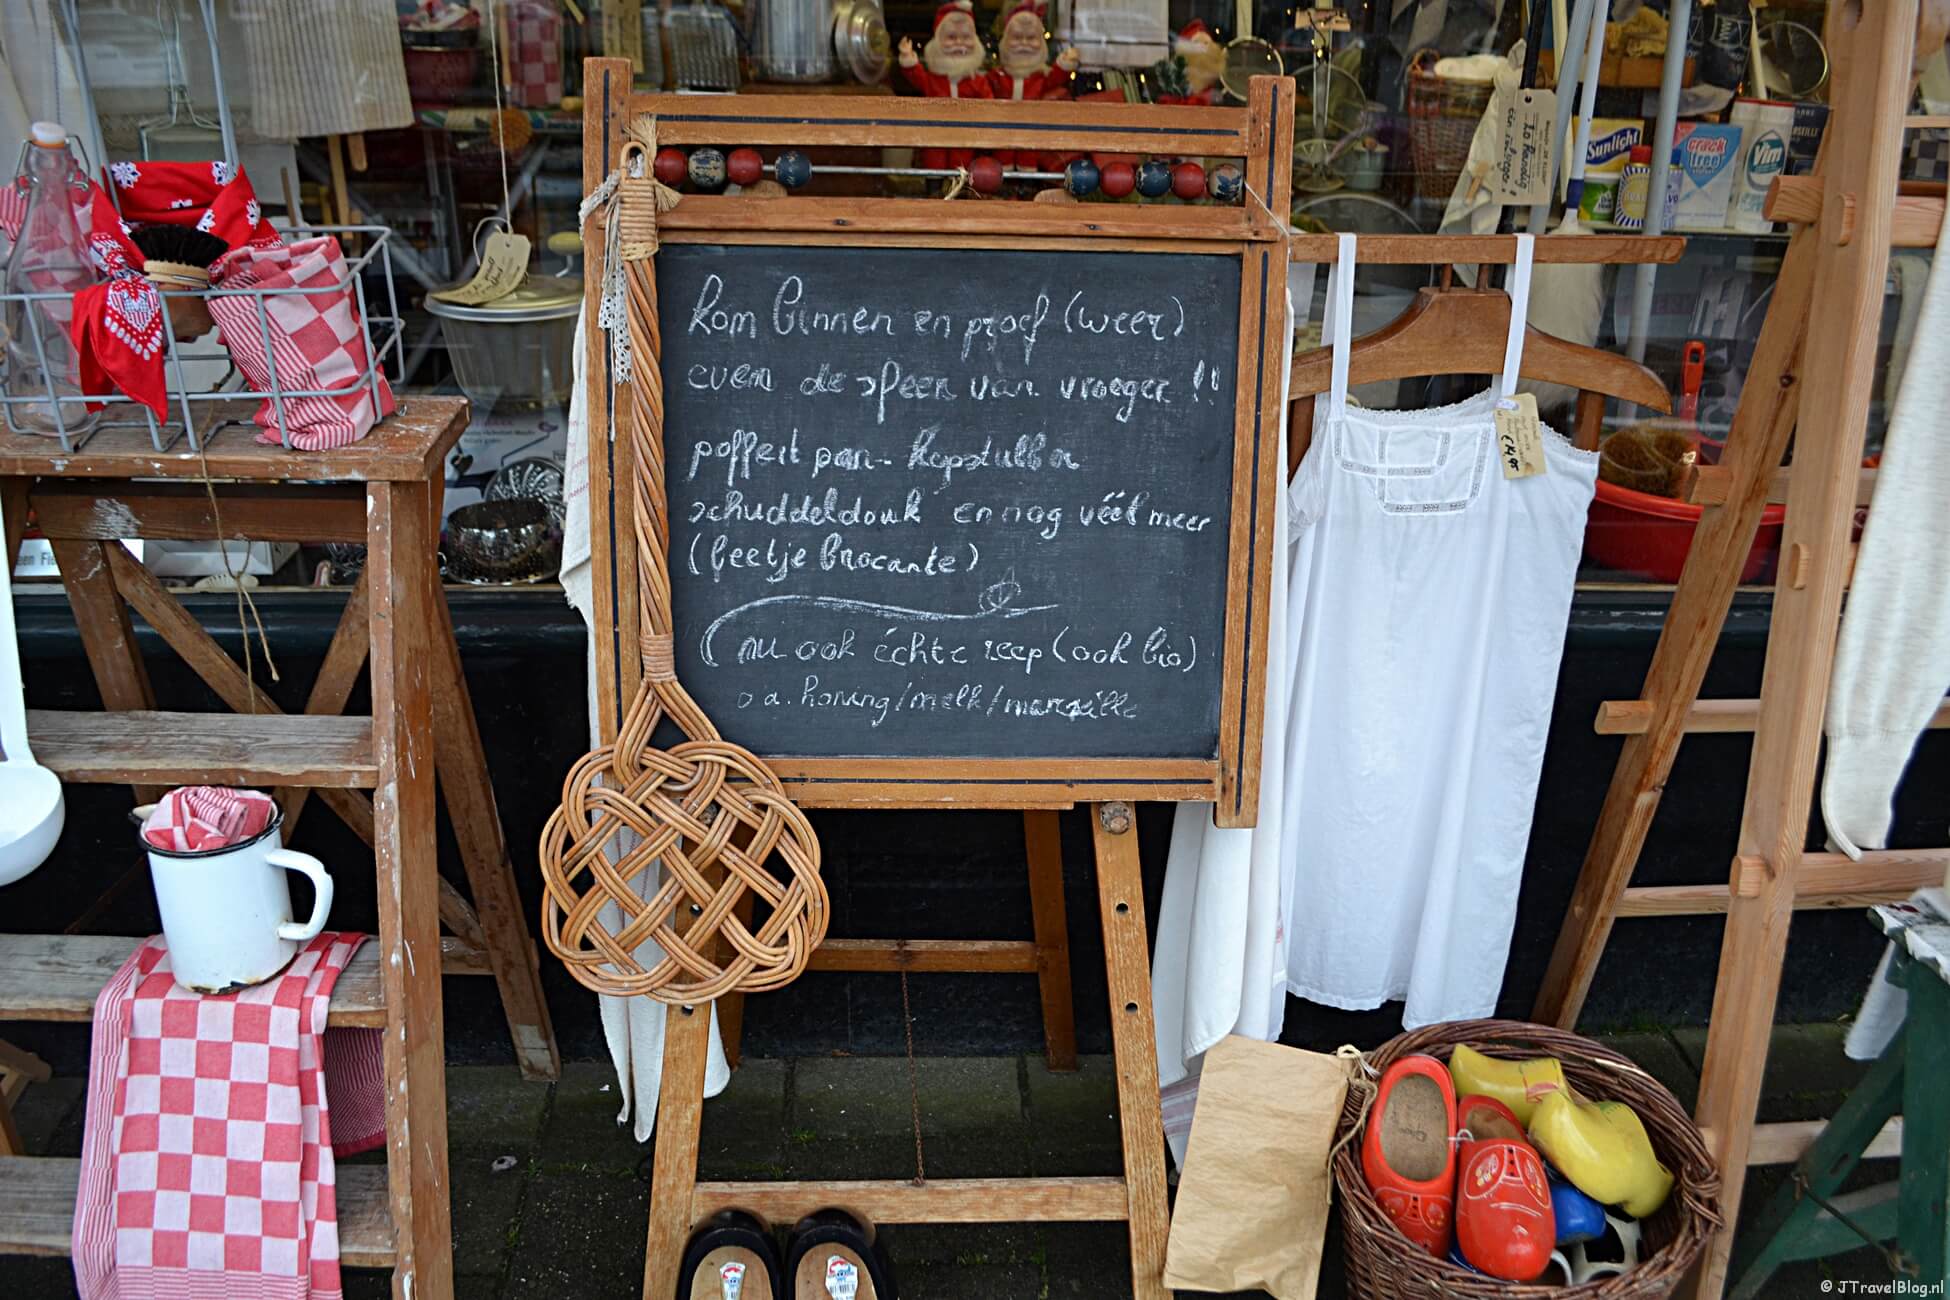 kom binnen en proef (weer)
even de sfeer van vroeger !!
poffert pan - klopstulben
schuddeldouk en nog véél meer
(beetje Brocante)
nu ook échte zeep (ook bio)
o.a. honing/melk/marseille
Sunlight
crack
free
Vim
€ 14,95
© JTravelBlog.nl